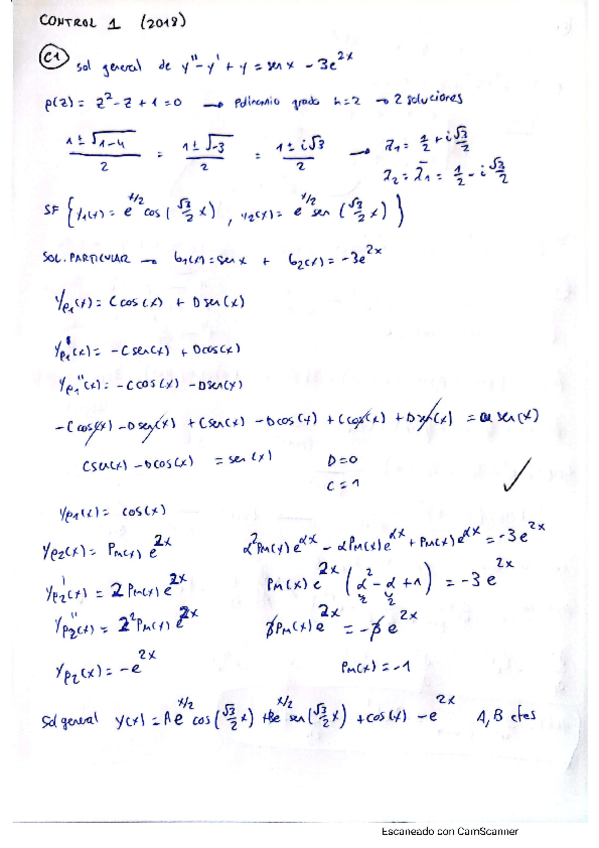 CONTROL 1 (2018)
C1 Sol general de y'' - y' + y = sen x - 3e^{2x}
p(z) = z² - z + 1 = 0 → Polinomio grado n=2 → 2 soluciones
(1 ± √(1-4))/2 = (1 ± √-3)/2 = (1 ± i√3)/2 → λ₁ = 1/2 + i √3/2
λ₂ = λ̄₁ = 1/2 - i √3/2
SF { y₁(x) = e^{x/2} cos(√3/2 x), y₂(x) = e^{x/2} sen(√3/2 x) }
SOL. PARTICULAR → b₁(x) = sen x + b₂(x) = -3e^{2x}
yp₁(x) = C cos(x) + D sen(x)
yp₁'(x) = -C sen(x) + D cos(x)
yp₁''(x) = -C cos(x) - D sen(x)
-C cos(x) - D sen(x) + C sen(x) - D cos(x) + C cos(x) + D sen(x) = sen(x)
C sen(x) - D cos(x) = sen(x) D=0
C=1 ✓
yp₁(x) = cos(x)
yp₂(x) = Pm(x) e^{2x} α² Pm(x) e^{αx} - α Pm(x) e^{αx} + Pm(x) e^{αx} = -3e^{2x}
yp₂'(x) = 2 Pm(x) e^{2x} Pm(x) e^{2x} (α² - α + 1) = -3e^{2x}
2 2
yp₂''(x) = 2² Pm(x) e^{2x} 3 Pm(x) e^{2x} = -3 e^{2x}
yp₂(x) = -e^{2x} Pm(x) = -1
Sol general y(x) = A e^{x/2} cos(√3/2 x) + B e^{x/2} sen(√3/2 x) + cos(x) - e^{2x} A, B ctes
Escaneado con CamScanner